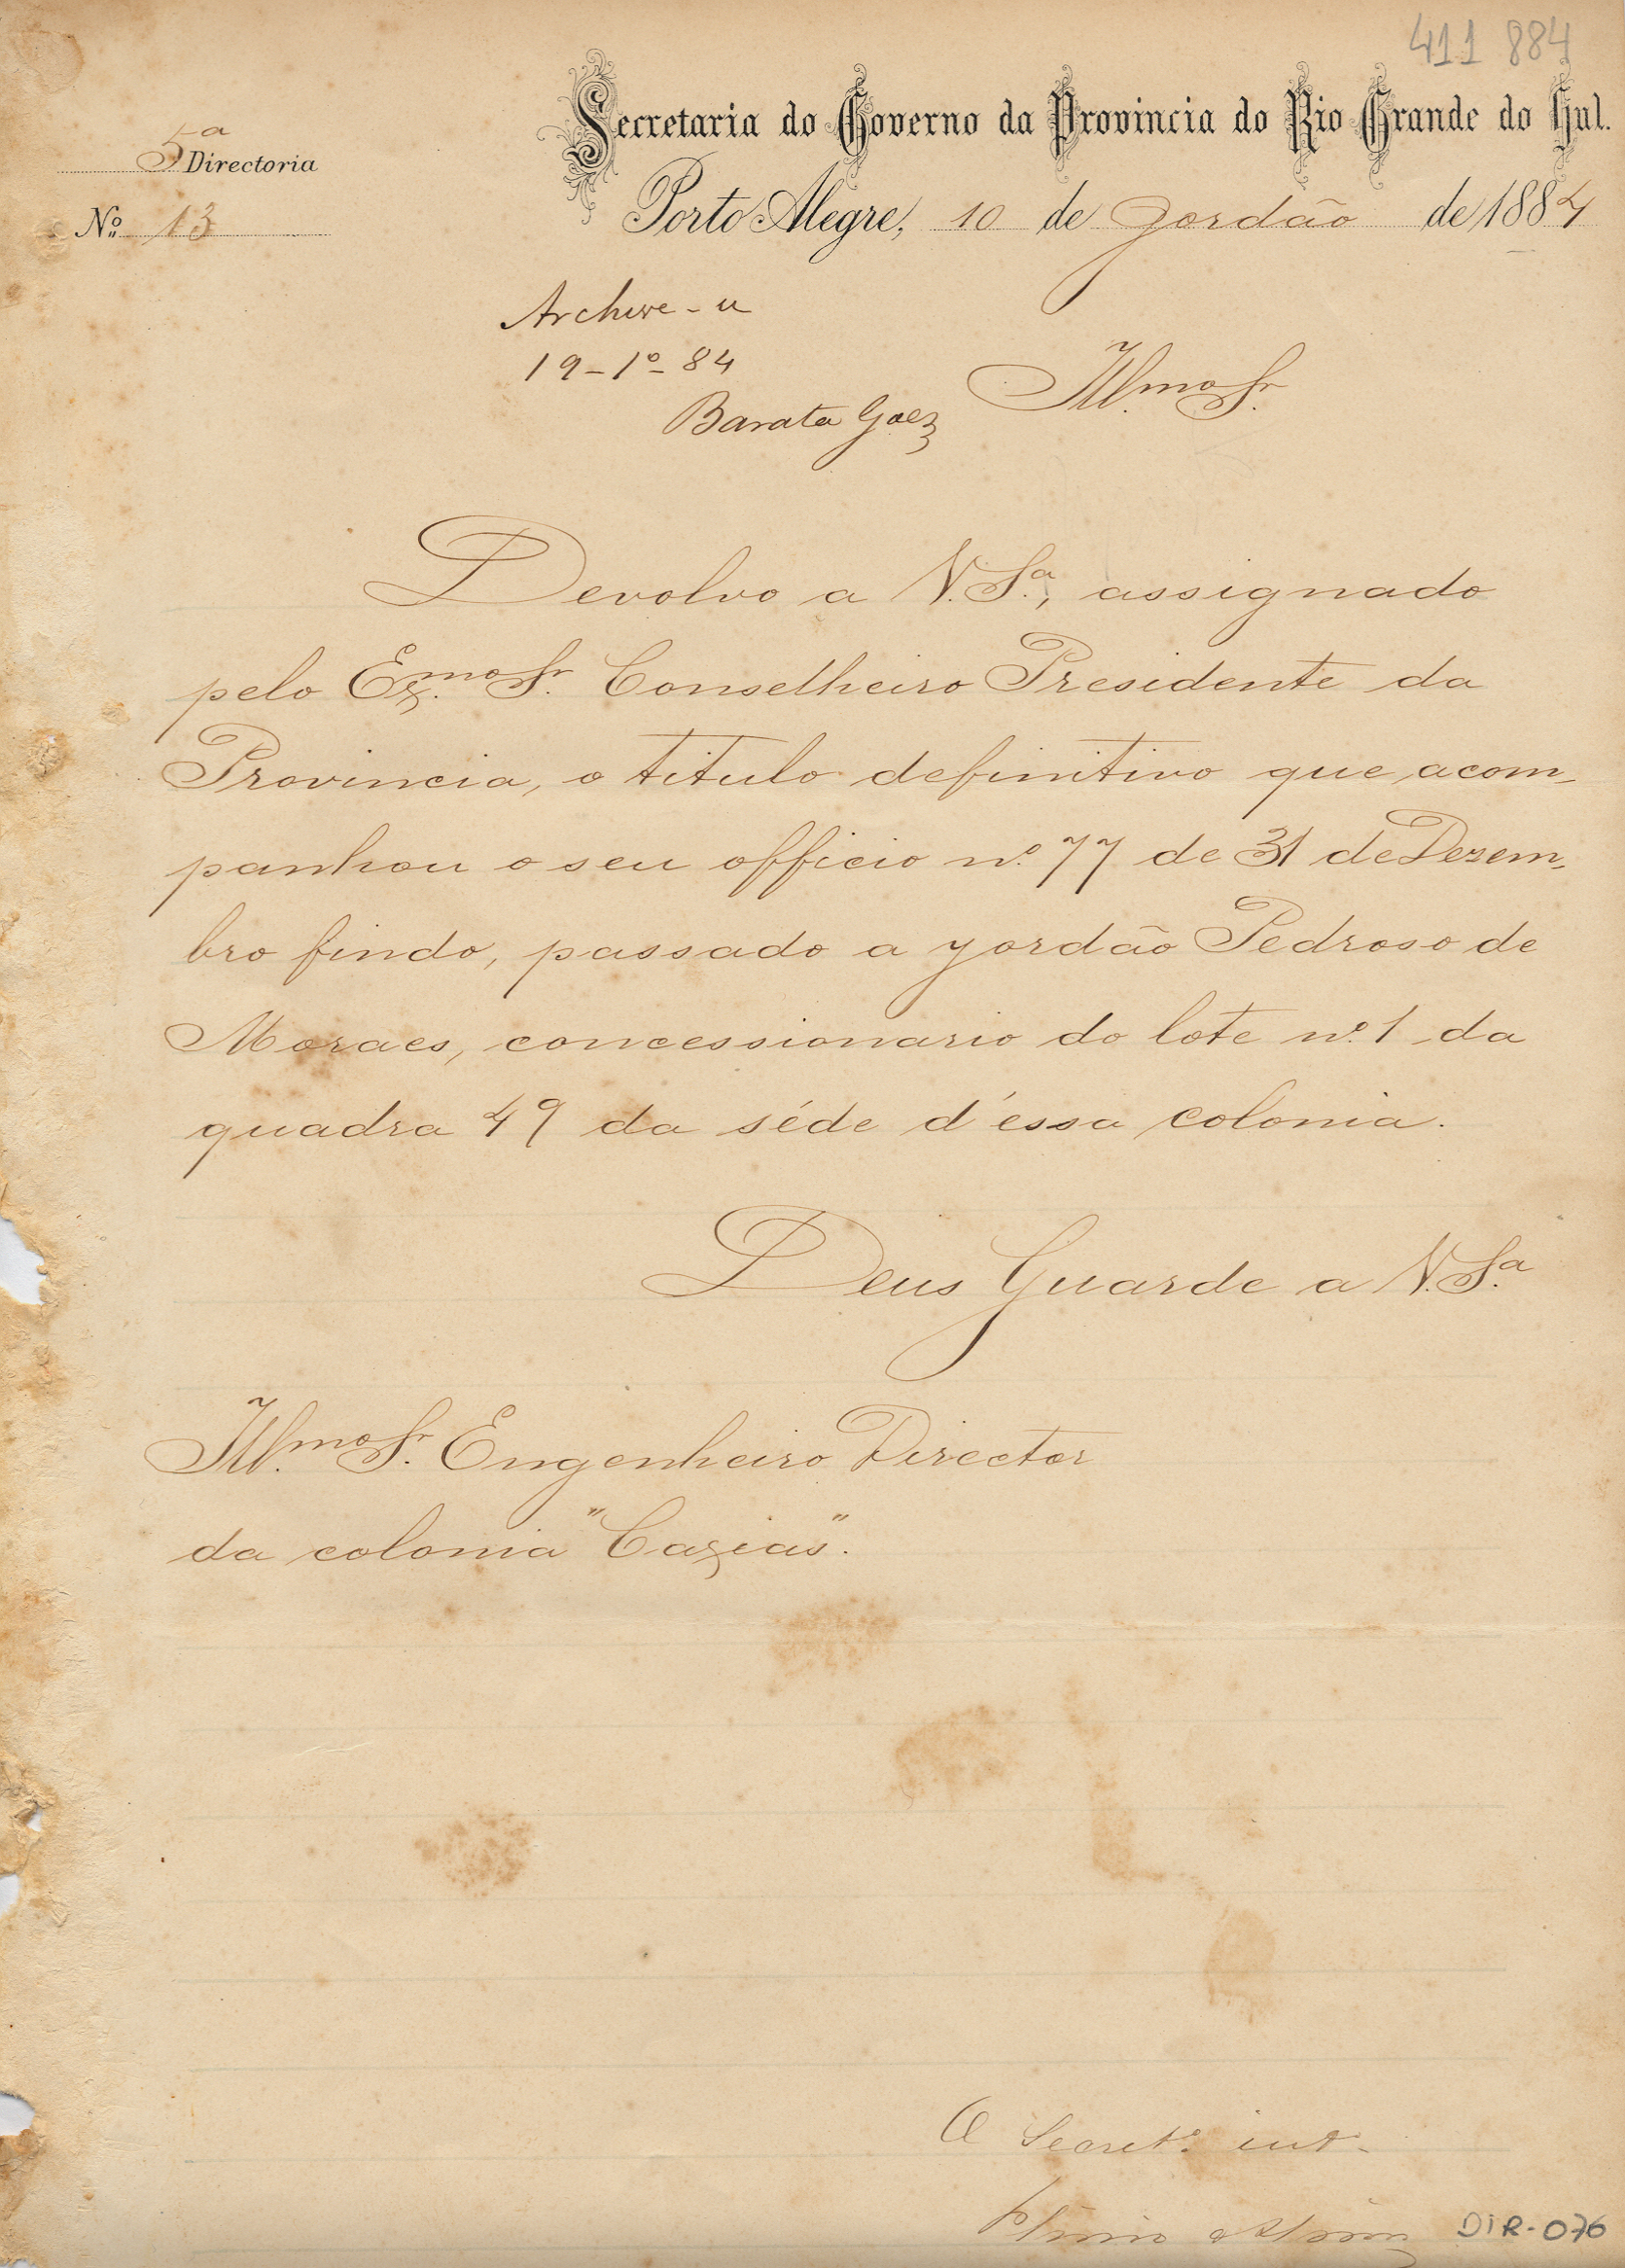 411 884
Secretaria do Governo da Provincia do Rio Grande do Sul.
5ª Directoria
Nº 13
Porto Alegre, 10 de Jordão de 1884
Archive-se
19-1º-84
Barata Góes
Illmo Sr.
Devolvo a V. Sª, assignado
pelo Exmo Sr. Conselheiro Presidente da
Provincia, o titulo definitivo que acom-
panhou o seu officio nº 77 de 31 de Dezem-
bro findo, passado a Jordão Pedroso de
Moraes, concessionario do lote nº 1 da
quadra 49 da séde d'essa colonia.
Deus Guarde a V. Sª
Illmo Sr. Engenheiro Director
da colonia "Caxias".
O Secretº intº
DIR-076